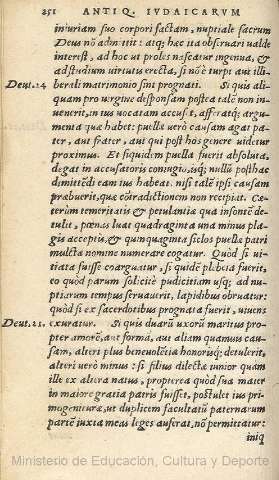 251 ANTIQ. IVDAICARVM
iniuriam suo corpori factam, nuptiale sacrum
Deus nõ admittit: atq; hæc ita obseruari ualde
interest, ad hoc ut proles nascatur ingenua, &
ad studium uirtutis erecta, si nõ è turpi aut illi-
Deut. 24 berali matrimonio sint prognati. Si quis ali-
quam pro uirgine desponsam postea talẽ non in-
uenerit, in ius uocatam accuset, afferatq; argu-
menta quæ habet: puellæ uerò causam agat pa-
ter, aut frater, aut qui post hos genere uidetur
proximus. Et siquidem puella fuerit absoluta,
degat in accusatoris coniugio, isq; nullũ posthac
dimittẽdi eam ius habeat. nisi talẽ ipsi causam
præbuerit, quæ cõtradictionem non recipiat. Cæ-
terùm temeritatis & petulantia qua insontẽ de-
tulit, pœnas luat quadraginta una minus pla-
gis acceptis, & quinquaginta siclos puellæ patri
mulctæ nomine numerare cogatur. Quòd si ui-
tiata fuisse coarguatur, si quidẽ plebeia fuerit,
eo quòd parum solicitè pudicitiam usq; ad nu-
ptiarum tempus seruauerit, lapidibus obruatur:
quòd si ex sacerdotibus prognata fuerit, uiuens
Deut. 21. exuratur. Si quis duarũ uxorũ maritus pro-
pter amorẽ, aut formã, aut aliam quamuis cau-
sam, alteri plus beneuolẽtia honorisq; detulerit,
alteri uerò minus: si filius dilectæ iunior quam
ille ex altera natus, propterea quòd sua mater
in maiore gratia patris fuisset, postulet ius pri-
mogenituræ, ut duplicem facultatũ paternarum
partẽ iuxta meas leges auferat, nõ permittatur:
iniq
Ministerio de Educación, Cultura y Deporte